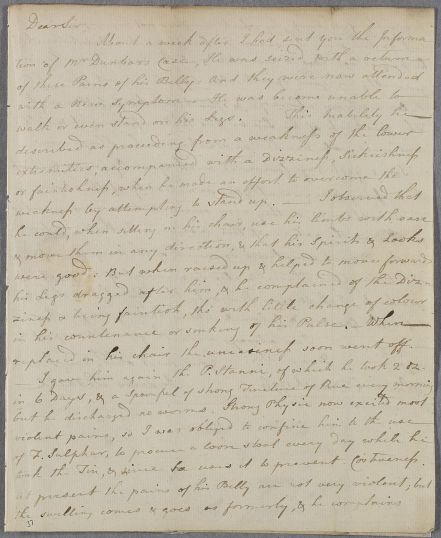 Dear Sir
About a week after I had sent you the Informa
tion of Mr Dunbars Case, He was seized with a return
of these Pains of his Belly. And they were now attended
with a New Symptom — He was become unable to
walk or even stand on his Legs. This Inability he
described as proceeding from a weakness of the lower
extremities, accompanied with a Dizziness, Sickishness
or faintishness, when he made an effort to overcome the
weakness by attempting to stand up. — I observed that
he could, when sitting in his chair, use his limbs with ease
& move them in any direction, & that his Spirits & Looks
were good: But when raised up & helped to move forward
his Legs dragged after him, & he complained of the Diz
ziness & being faintish, tho with little change of colour
in his countenance or sinking of his Pulse. — When
replaced in his chair the uneasiness soon went off.
— I gave him again the P. Stanni, of which he took 2 oz.
in 6 Days, & a spoonful of strong Tincture of Rue every morning
but he discharged no worms. Strong Physic now excited most
violent pains, so I was obliged to confine him to the use
of F. Sulphur, to procure a loose stool every day while he
took the Tin, & since he uses it to prevent Costiveness.
At present the pains of his Belly are not very violent; but
the swelling comes & goes as formerly, & he complains